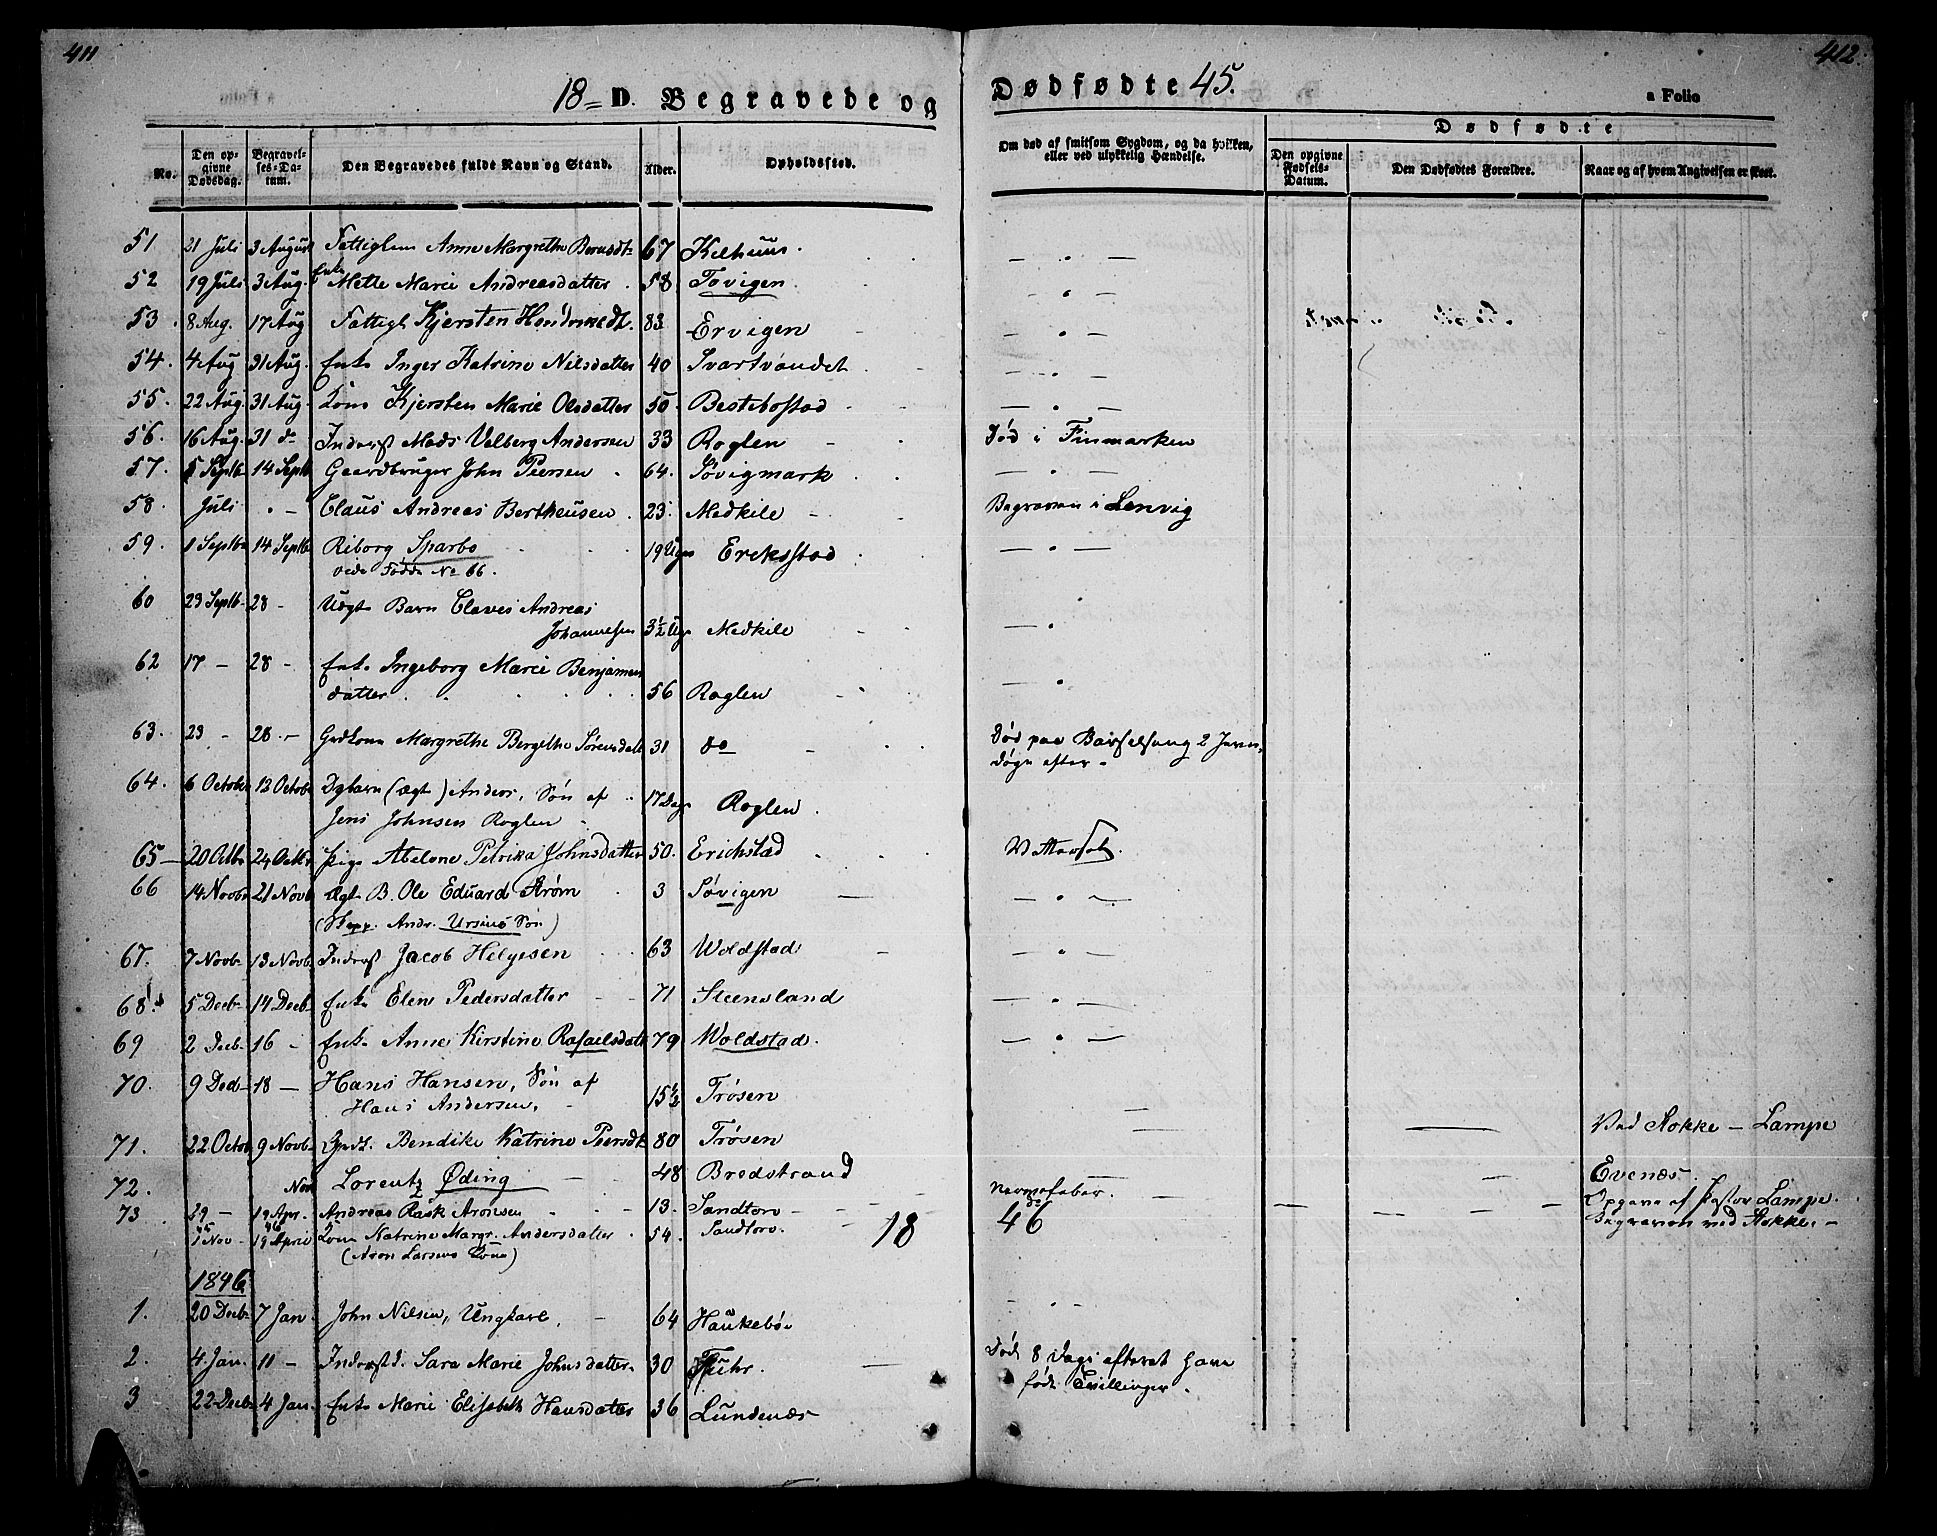 411
412.
18 D. Begravede og Dødfødte 45.
a Folio
No.
Den opgivne Dødsdag.
Begravelses-Datum.
Den Begravedes fulde Navn og Stand.
Alder.
Opholdssted.
Om død af smitsom Sygdom, og da hvilken, eller ved ulykkelig Hændelse.
Dødfødte
Den opgivne Fødsels-Datum.
Den Dødfødtes Forældre.
Naar og af hvem Angivelsen er skeet.
51. 21 Juli 3 August Fattiglem Anne Margrethe Berntsdt 67 Kilhuus. — " —
52 19 Juli 3 Aug. Enke Mette Marie Andreasdatter 58 Tovigen — " —
53. 8 Aug. 17 Aug Fattigl Kjersten 83 Ervigen — " —
54. 4 Aug 31 Aug. Enke Inger Katrine Nilsdatter 40 Svartvandet — " —
55. 22 Aug. 31 Aug. Kone Kjersten Marie Olsdatter 50. Bestebostad — " —
56. 16 Aug. 31 do Inderst Mads Volberg Andersen 33 Roglen — Død i Finmarken
57. 5 Septb 14 Septb Gaardbruger John Peersen 64. Søvigmark — " —
58. Juli " — Claus Andreas Bertheusen 23. Medkile — Begraven i Lenvig
59. 1 Septb 14 Septb Riborg Sparbo 19 Uger Ereksstad — " —
vide Fødde No 66.
60 23 Septb- 28 - Uægte Barn Claves Andreas
Johannesen 3½ Ug Medkile — "
62 17 — 28 - Enke Ingeborg Marie Benjamen
datter 56 Roglen — "
63. 23 - 28 - Gdkone Margrethe Bergithe Sørensdatt 31 do — Død paa Barselseng 2
døgn efter.
64. 6 Octobr 12 Octobr Dgbarn (ægt) Andor, Søn af 17 Dage Roglen
Jens Johnsen Roglen
65 — 20 Octbr 24 Octbr Pige Abelone Petrika Johnsdatter 50. Erichstad Vattersot.
66 14 Novbr 21 Novb Ægte B. Ole Eduard Strøm 3 Søvigen — — " —
(Skpp. Andr. Ursinus Søn)
67. 7 Novb- 13 Novb. Inderst Jacob Helgesen 63 Woldstad — — " —
68. 5 Decb- 14 Decb- Enke Elen Pedersdatter 71 Steensland — " —
69 2 Decb- 16 - Enke Anne Kirstine Rafaelsdatt 79 Woldstad. — " —
70. 9 Decb- 18 — Hans Hansen, Søn af
Hans Andersen. 15½ Trøsen
71. 22 Octobr 9 Novb- Bendike Katrine Peersdt 80 Trøsen — Ved Stokke — Lampe
72. Nov Lorentz Øding — 48 Bredstrand Evenæs.
73 29 — 19 Apr. 46 Andreas Rask Aronsen 13. Sandtorv - Nervefeber. Opgave af Pastor Lampe.
1 Nov - 19 April Kone Katrine Margr. Andersdatter 54. Sandtorv. do Begraven ved Stokke. —
(Aron Larsens Kone)
18 46
1846
1. 20 Decb- 7 Jan John Nilsen, Ungkarl, 64 Haukebø — " —
2. 4. Jan. 11 — Inderstk. Sara Marie Johnsdatter 30 Fuhr. — Død 8 Dage efterat have
født Tvillinger.
3 22 Decb- 4 Jan. Enke Marie Elisabeth Hansdatter 36 Lundenæs